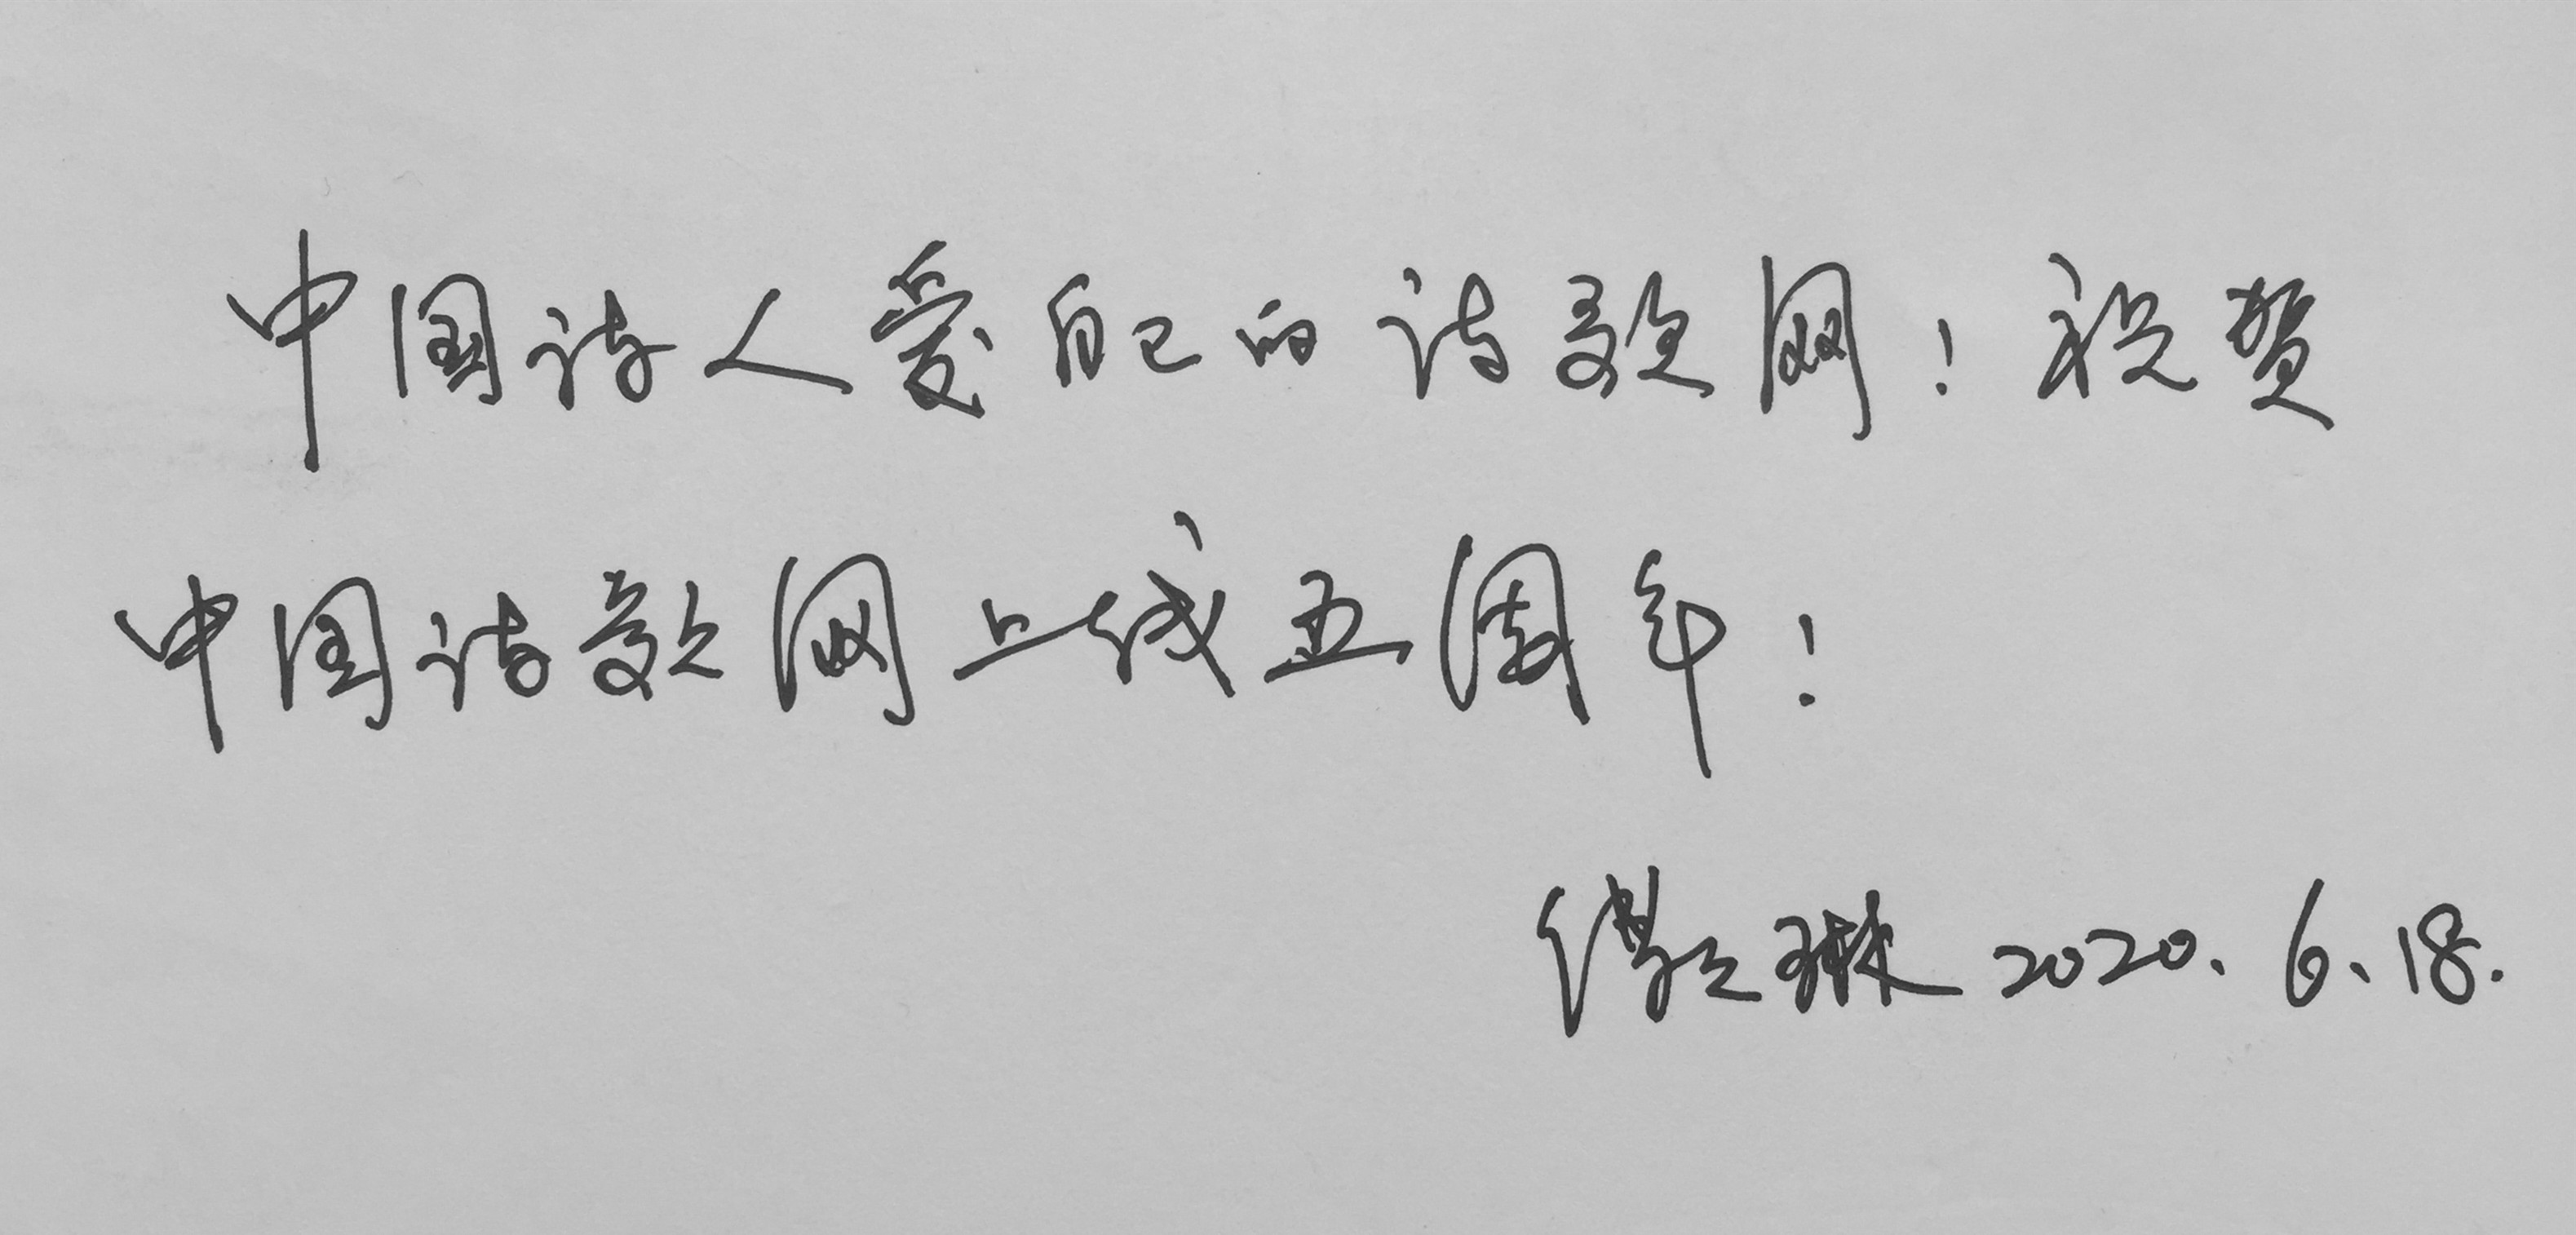 中国诗人爱自己的诗歌网！祝贺
中国诗歌网上线五周年！
傅天琳 2020.6.18.